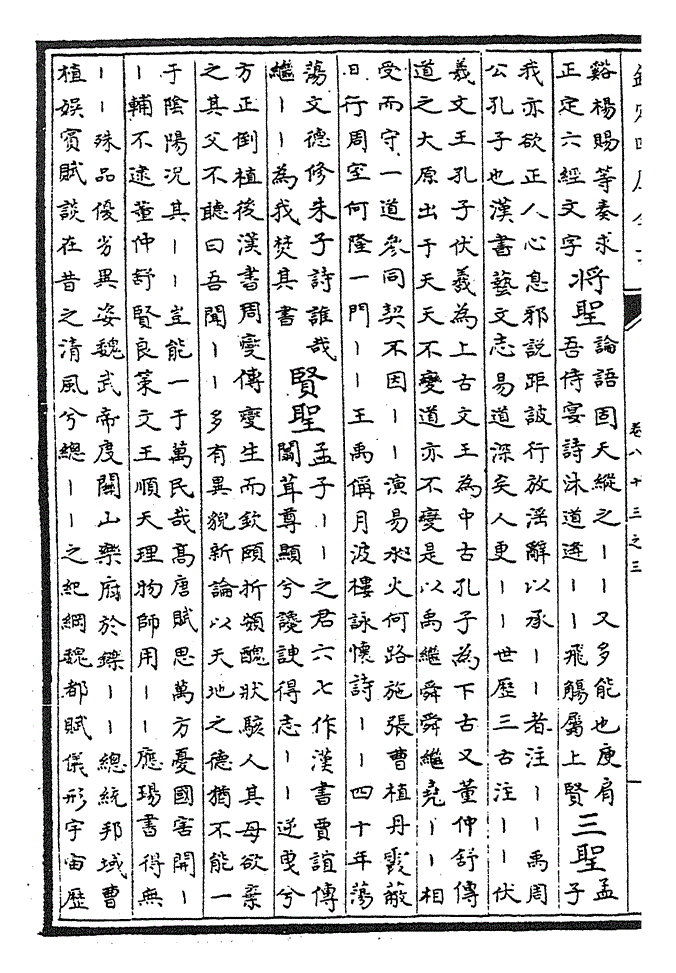 卷八十三之三
谿楊賜等奏求
正定六經文字
將聖
論語固天縱之｜｜又多能也庾肩
吾侍宴詩沐道逢｜｜飛觴屬上賢
三聖
孟
子
我亦欲正人心息邪說距詖行放淫辭以承｜｜者注｜｜禹周
公孔子也漢書藝文志易道深矣人更｜｜世歷三古注｜｜伏
羲文王孔子伏羲為上古文王為中古孔子為下古又董仲舒傳
道之大原出于天天不變道亦不變是以禹繼舜舜繼堯｜｜相
受而守一道參同契不因｜｜演易水火何路施張曹植丹霞蔽
日行周室何隆一門｜｜王禹偁月波樓詠懷詩｜｜四十年蕩
蕩文德修朱子詩誰哉
繼｜｜為我焚其書
賢聖
孟子｜｜之君六七作漢書賈誼傳
闒茸尊顯兮讒諛得志｜｜逆曳兮
方正倒植後漢書周燮傳燮生而欽頤折頞醜狀駭人其母欲棄
之其父不聽曰吾聞｜｜多有異貌新論以天地之德猶不能一
于陰陽況其｜｜豈能一于萬民哉高唐賦思萬方憂國害開｜
｜輔不逮董仲舒賢良策文王順天理物師用｜｜應瑒書得無
｜｜殊品優劣異姿魏武帝度關山樂府於鑠｜｜總統邦域曹
植娛賓賦談在昔之清風兮總｜｜之紀綱魏都賦儀形宇宙歷